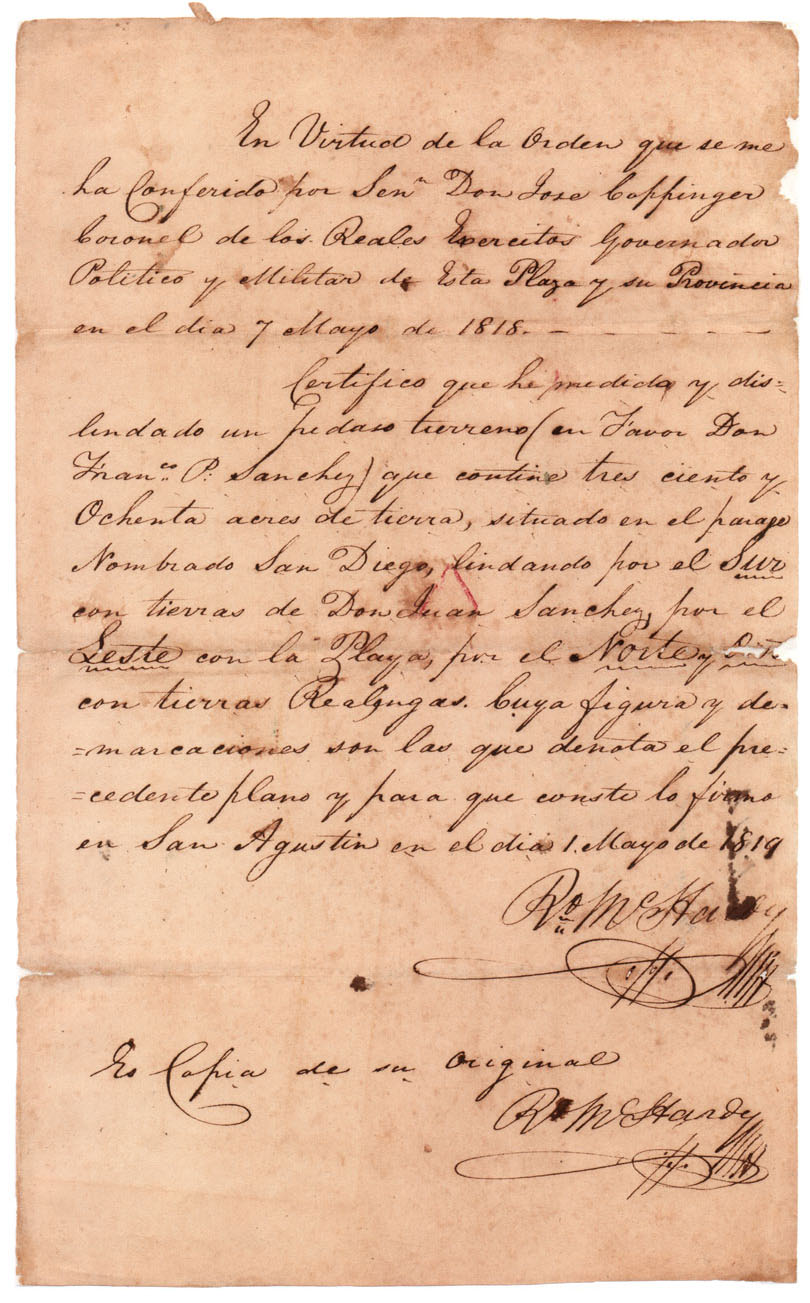 En Virtud de la Orden que se me
ha Conferido por Senr Don Jose Coppinger
Coronel de los Reales Exercitos Governador
Politico y Militar de Esta Plaza y su Provincia
en el dia 7 Mayo de 1818. – – – – –
Certifico que he medida y dis=
lindado un pedaso tierreno (en Favor Don
Franco. P. Sanchez) que contine tres ciento y
Ochenta acres de tierra, situado en el parage
Nombrado San Diego, lindando por el Sur
con tierras de Don Juan Sanchez, por el
Leste con la Playa, por el Norte y
con tierras Realengas. Cuya figura y de=
=marcaciones son las que denota el pre=
=cedente plano y para que conste lo firmo
en San Agustin en el dia 1. Mayo de 1819
Ro McHardy
Es Copia de su Original
Ro McHardy